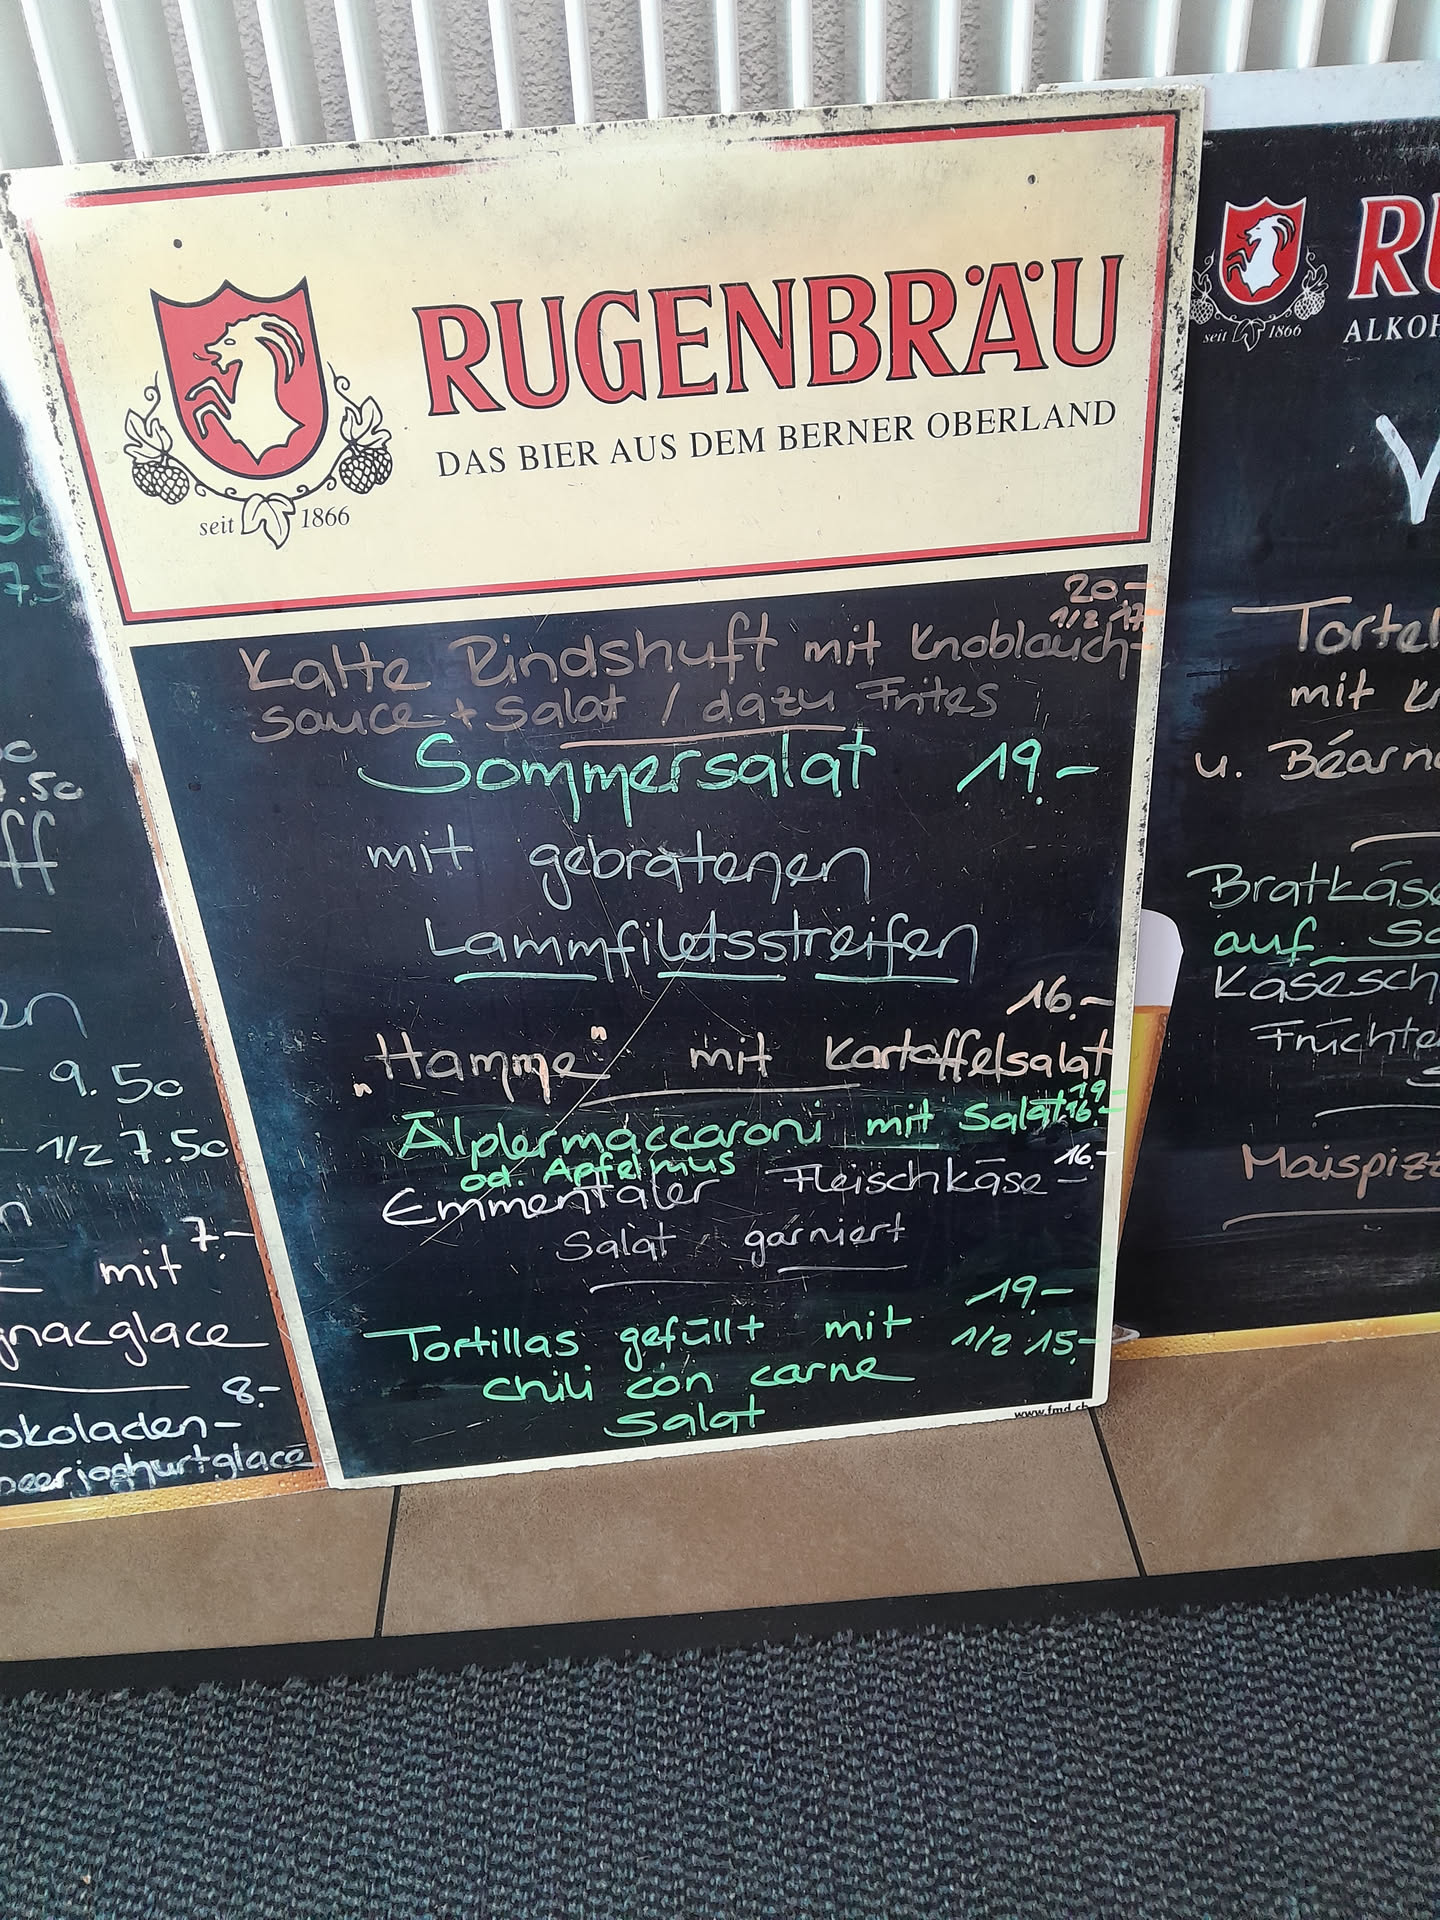 RUGENBRÄU
DAS BIER AUS DEM BERNER OBERLAND
seit 1866
20.-
1/2 17.-
Kalte Rindshuft mit Knoblauch-
sauce + Salat / dazu Frites
Sommersalat 19.-
mit gebratenen
Lammfiletsstreifen
16.-
"Hamme" mit Kartoffelsalat
19.-
Älplermaccaroni mit Salat 16.-
od. Apfelmus
Emmentaler Fleischkäse 16.-
Salat garniert
19.-
Tortillas gefüllt mit 1/2 15.-
chili con carne
Salat
www.fmd.ch
7.50
ff
en
9.50
1/2 7.50
n
7.-
mit
gnacglace
8.-
okoladen-
beerjoghurtglacé
RU
seit 1866
ALKOH
V
Tortel
mit Kr
u. Béarn
Bratkäse
auf Sa
Käsesch
Früchte
S
Maispizz